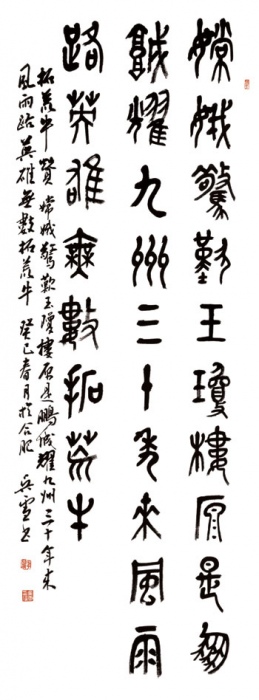 嫦娥驚歎玉瓊樓原是鵬
城耀九州三十年來風雨
路英雄無數拓荒牛
拓荒牛贊 嫦娥驚歎玉瓊樓原是鵬城耀九州三十年來
風雨路英雄無數拓荒牛 癸巳春月於合肥 吳雪書